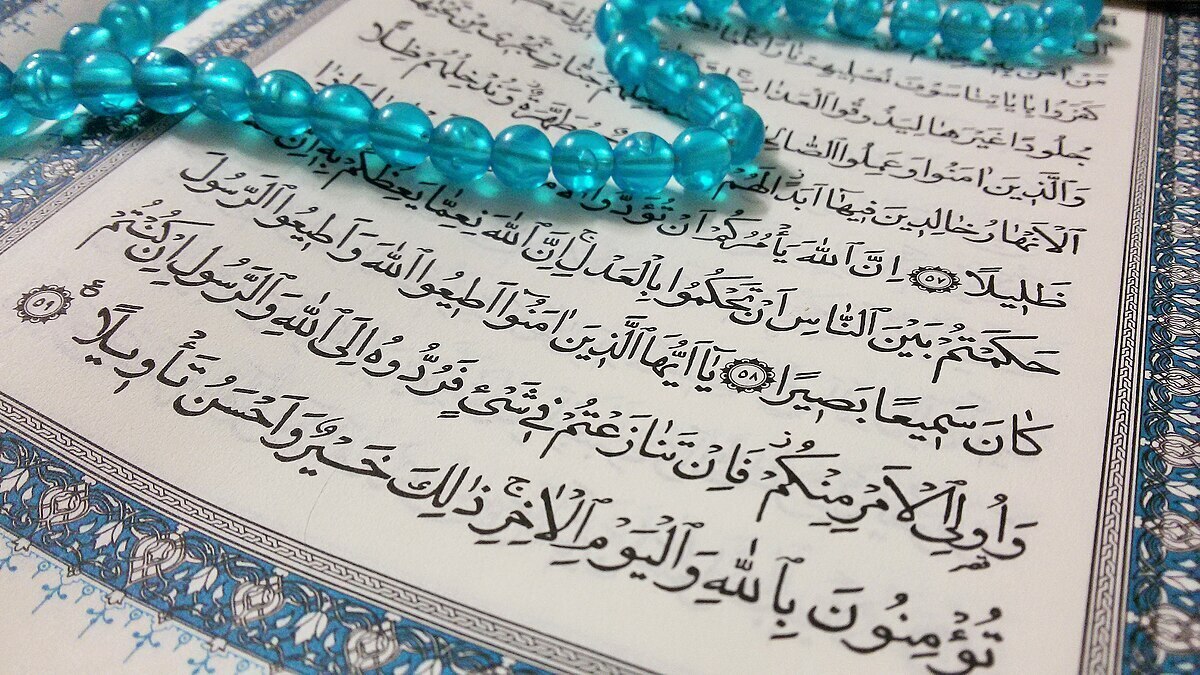 مَنْ اٰمَنَ
كَفَرُوا بِاٰيَاتِنَا سَوْفَ نُصْلِيهِمْ نَارًا كُلَّمَا
جُلُودًا غَيْرَهَا لِيَذُوقُوا ٱلْعَذَابَ
وَٱلَّذِينَ اٰمَنُوا وَعَمِلُوا ٱلصَّالِحَاتِ جَنَّاتٍ تَجْرِى مِنْ تَحْتِهَا
ٱلْاَنْهَارُ خَالِدِينَ فِيهَٓا اَبَدًا لَهُمْ مُطَهَّرَةٌ وَنُدْخِلُهُمْ ظِلًّا
ظَلِيلًا ٥٧ اِنَّ ٱللّٰهَ يَأْمُرُكُمْ اَنْ تُؤَدُّوا
حَكَمْتُمْ بَيْنَ ٱلنَّاسِ اَنْ تَحْكُمُوا بِٱلْعَدْلِ اِنَّ ٱللّٰهَ نِعِمَّا يَعِظُكُمْ بِهِ اِنَّ
كَانَ سَمِيعًا بَصِيرًا ٥٨ يَٓا اَيُّهَا ٱلَّذِينَ اٰمَنُٓوا اَطِيعُوا ٱللّٰهَ وَاَطِيعُوا ٱلرَّسُولَ
وَاُولِى ٱلْاَمْرِ مِنْكُمْ فَاِنْ تَنَازَعْتُمْ فِى شَىْءٍ فَرُدُّوهُ اِلَى ٱللّٰهِ وَٱلرَّسُولِ اِنْ كُنْتُمْ
تُؤْمِنُونَ بِٱللّٰهِ وَٱلْيَوْمِ ٱلْاٰخِرِ ذٰلِكَ خَيْرٌ وَاَحْسَنُ تَأْوِيلًا ٥٩